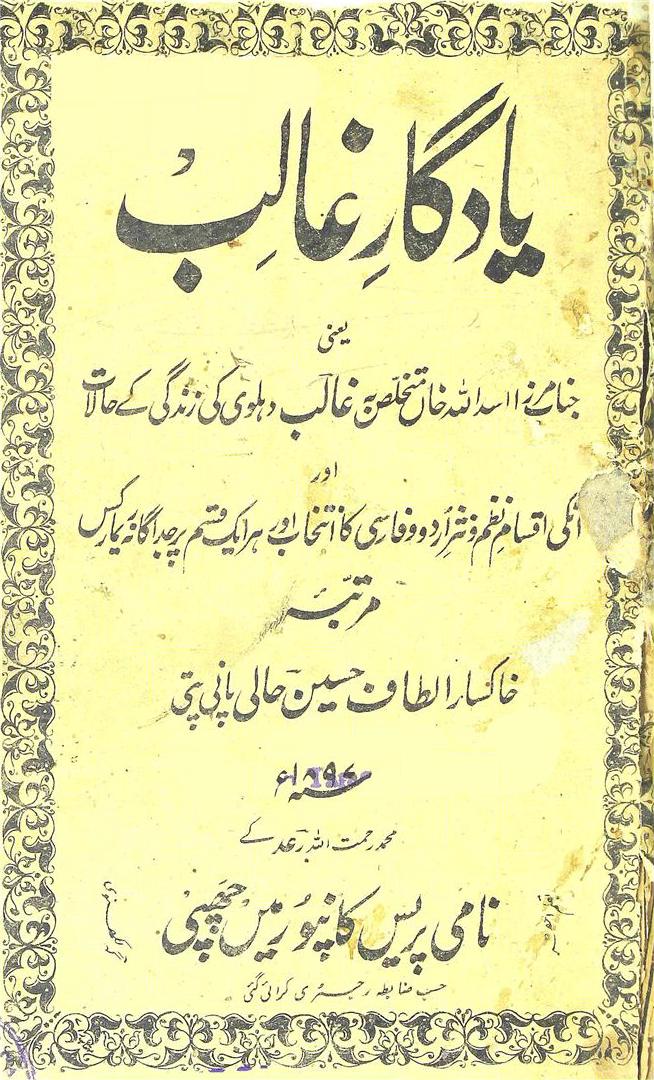 یادگارِ غالِب
یعنی
جناب مرزا اسد اللہ خاں متخلص بہ غالب دہلوی کی زندگی کے حالات
اور
انکی اقسامِ نظم و نثرِ اُردو و فارسی کا انتخاب اور ہر ایک قسم پر جداگانہ ریمارکس
مرتبہ
خاکسار الطاف حسین حالی پانی پتی
سنہ ۱۸۹۷ء
محمد رحمت اللہ رعد کے
نامی پریس کانپور میں چھپی
حسب ضابطہ رجسٹری کرائی گئی